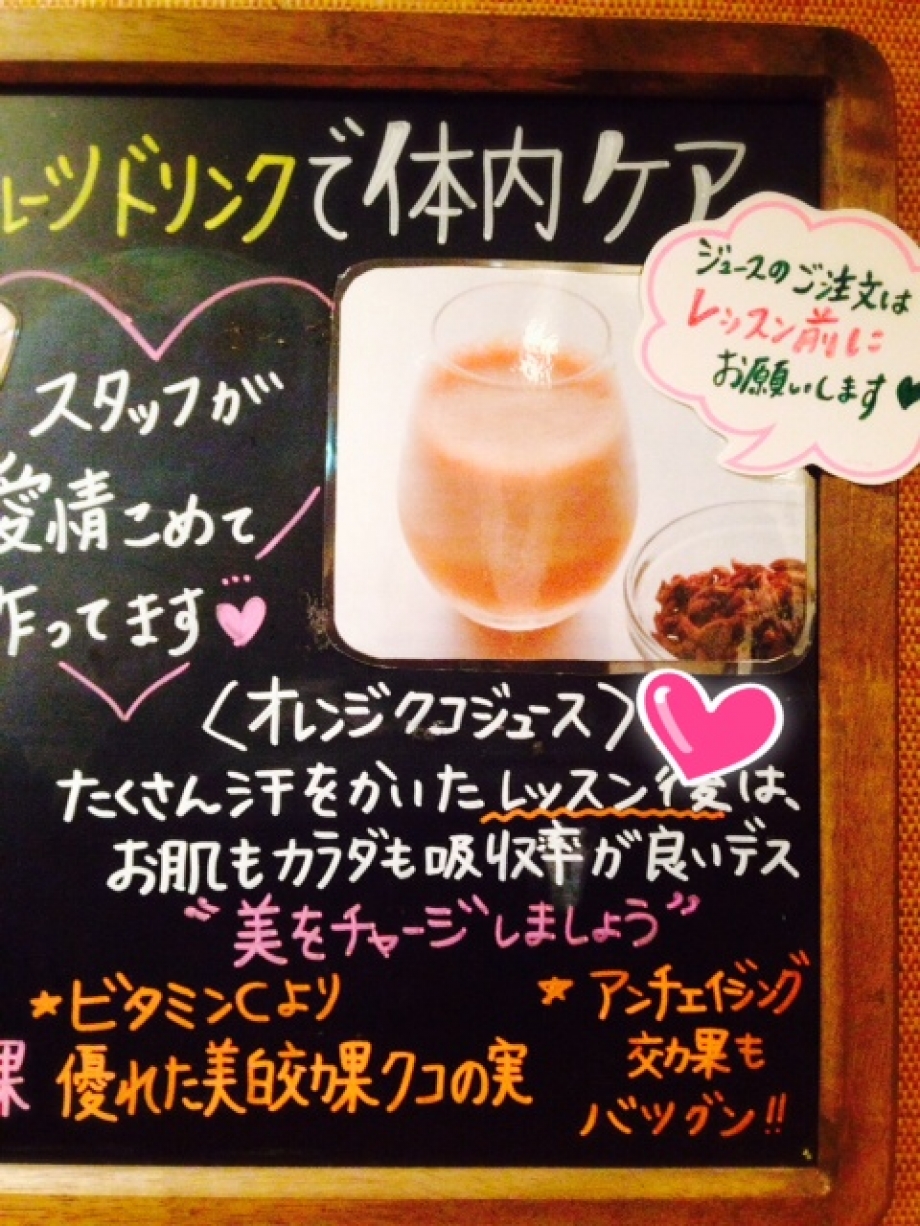 ルーツドリンクで体内ケア
ジュースのご注文は
レッスン前に
お願いします
スタッフが
愛情こめて
作ってます
〈オレンジクコジュース〉
たくさん汗をかいたレッスン後は、
お肌もカラダも吸収率が良いデス
“美をチャージしましょう”
★ビタミンCより
優れた美白効果クコの実
★アンチェイジング
効果も
バツグン!!
果